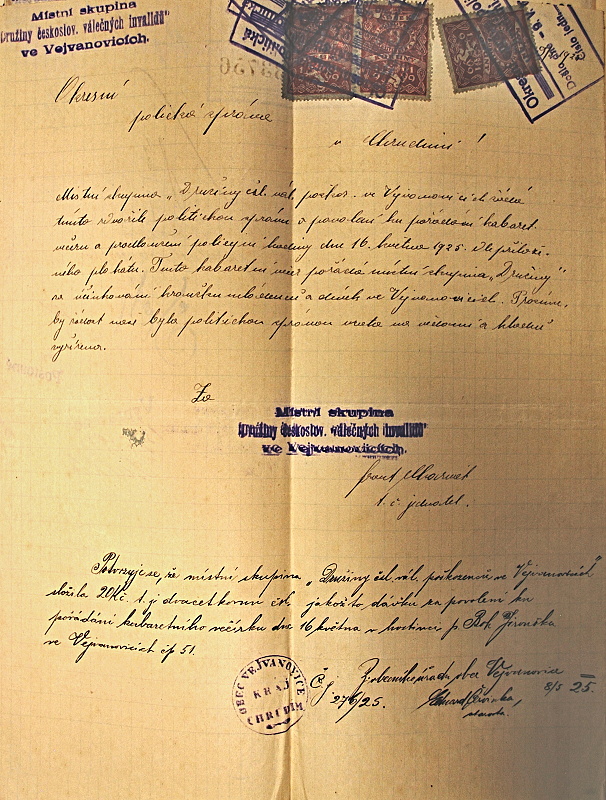 Místní skupina
„Družiny českoslov. válečných invalidů"
ve Vejvanovicích.
Okresní
politická správa
v Chrudimi!
Místní skupina „Družiny čsl. vál. poškoz. ve Vejvanovicích žádá
tuto politickou správu o povolení ku pořádání kabaret.
večeru a prodloužení policejní hodiny dne 16. května 1925 dle přilože-
ného plakátu. Tento kabaretní večer pořádá místní skupina „Družiny"
za účinkování kroužku mládenců a dívek ve Vejvanovicích. Prosíme,
by žádost naše byla politickou správou vzata na vědomí a kladně
vyřízena.
Za
Místní skupina
„Družiny českoslov. válečných invalidů"
ve Vejvanovicích.
t. č. jednatel.
Potvrzuje se, že místní skupina „Družiny čsl. vál. poškozenců ve Vejvanovicích"
složila 20 Kč t. j. dvacet korun čsl. jakožto dávku za povolení ku
pořádání kabaretního večírku dne 16 května v hostinci p. Boh.
ve Vejvanovicích čp 51.
OBEC VEJVANOVICE
KRAJ
CHRUDIM
Čj
276/25.
Z obecního úřadu obce Vejvanovice
8/5 25.
starosta.